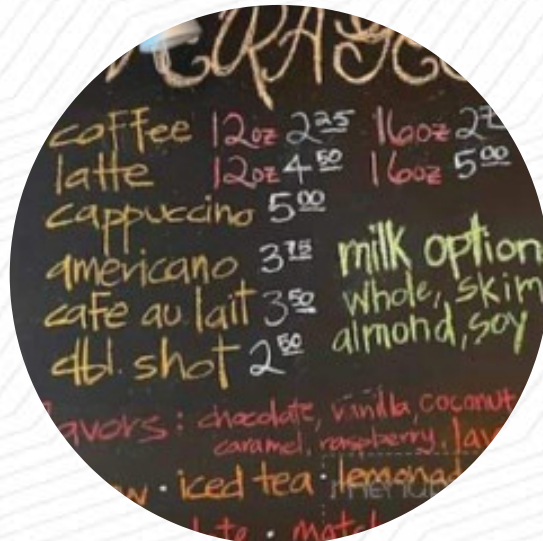 coffee 12oz 2.25 16oz
latte 12oz 4.50 16oz 5.00
cappuccino 5.00
americano 3.75
cafe au lait 3.50
dbl. shot 2.50
milk option
whole, skim
almond, soy
avors: chocolate, vanilla, coconut
caramel, raspberry,
· iced tea · lemonad